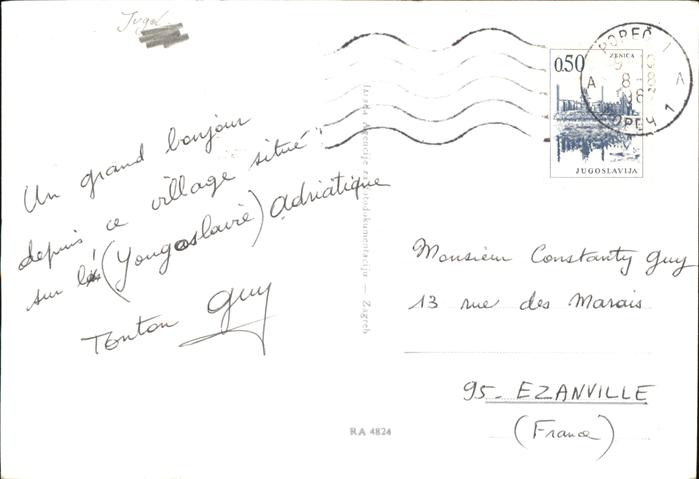 Jugos
Un grand bonjour
depuis ce village situé
sur l' (Yougoslavie) Adriatique
Tonton Guy
Izrada Agencije za fotodokumentaciju — Zagreb
RA 4824
0.50
ZENICA
JUGOSLAVIJA
POREČ 1
A A
8
18
ПОРЕЧ 1
Monsieur Constanty Guy
13 rue des Marais
95- EZANVILLE
(France)